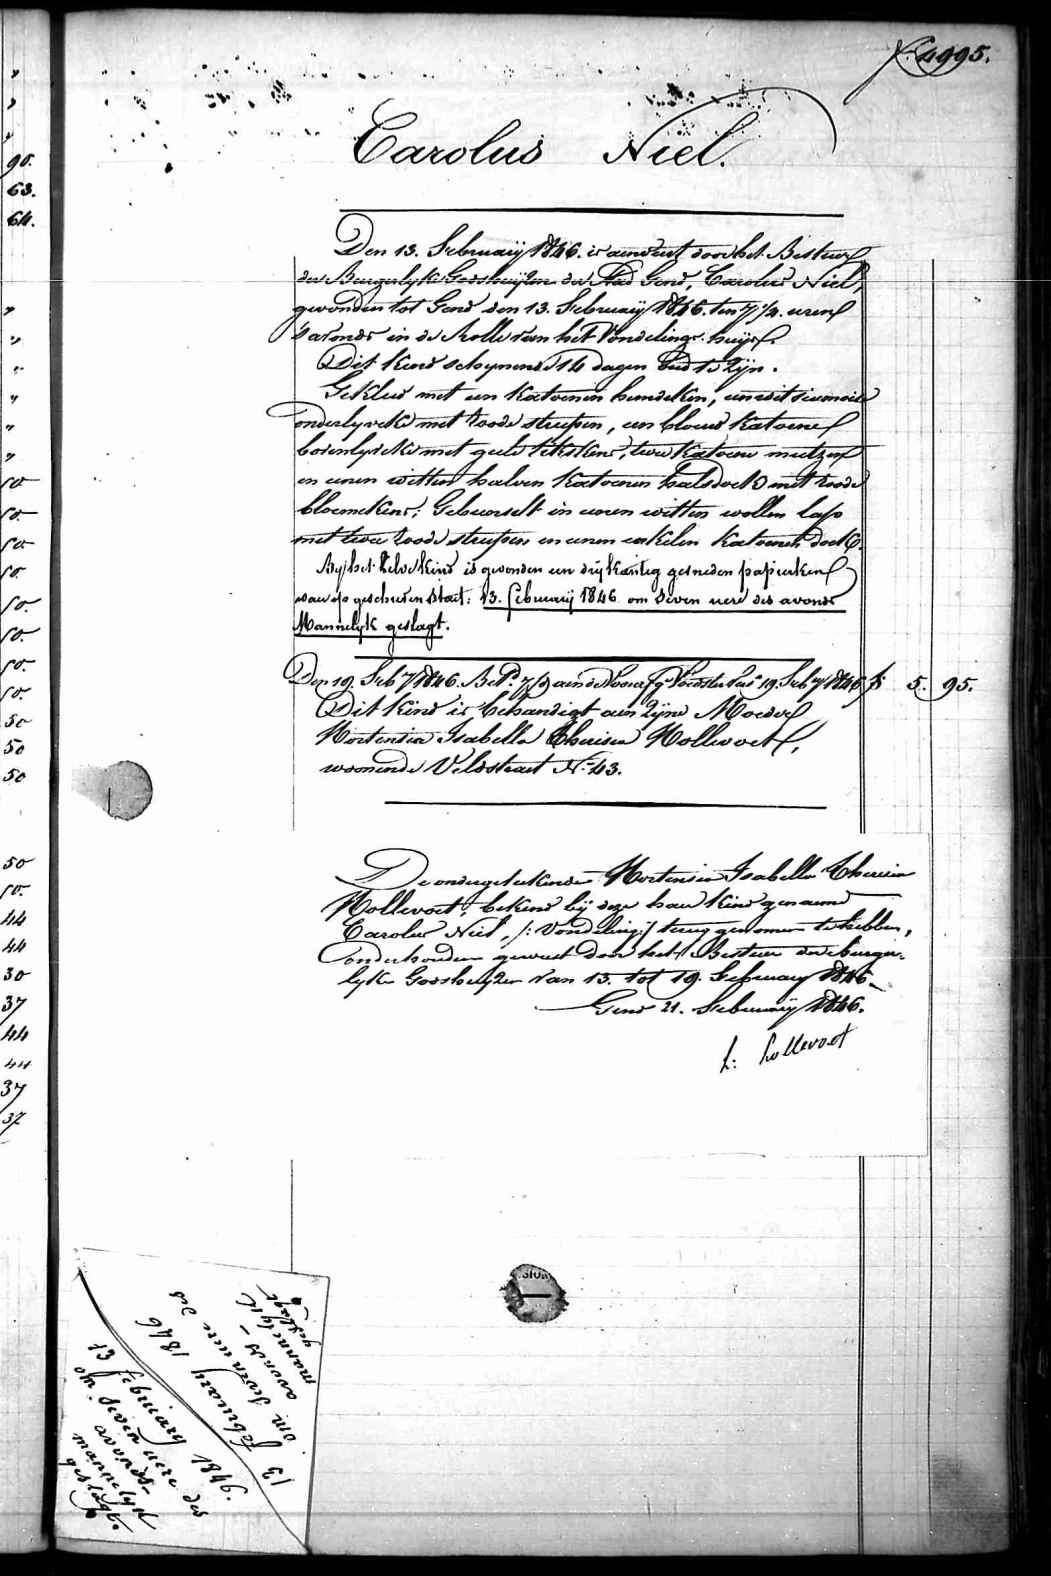 f. 4995.
90.
63.
64.
Carolus Niel.
Den 13. February 1846. is aenveert door het Bestuer
der Burgerlyke Godshuijzen der Stad Gend, Carolus Niel,
gevonden tot Gend den 13. February 1846. ten 7 1/4. uren
's avonds in de Rolle van het Vondelings-huijs.
Dit kind schynende 14 dagen oud te zyn.
Gekleed met een katoenen hemdeken, een wit siamoise
onderlyveke met roode streepen, een blouw katoene
bovenlyveke met geele tekskens, twee katoene mutzen
en eenen witten halven katoenen halsdoek met roode
bloemekens: Gebusselt in eenen witten wollen lap
met twee roode streepen en eenen enkelen katoenen doek.
By het zelve kind is gevonden een dry kantig gesneden papierken
waer op geschreven staet: 13. february 1846 om seven uere des avonds
Mannelyk geslagt.
Den 19. Feby 1846. Bet. aen de Voorsr. 19. Feby 1846 f: 5. 95.
Dit kind is behandigt aen zyne Moeder
Hortensia Isabella Theresia Hollevoet,
woonende Veldstraet No. 43.
De ondergeteekende Hortensia Isabella Theresia
Hollevoet, bekend by deze haer kind genaemd
Carolus Niel, /: Vondeling :/ terug genomen te hebben,
onderhouden geweest door het Bestuer der burger-
lyke Godshuyzen van 13. tot 19. February 1846.
Gend 21. February 1846.
h: hollevoet
50
50.
44
44
30
37
44
44
37
37
13 february 1846
om seven uere des
avonds -
mannelyk
geslagt
13 february 1846.
om seven uere des
avonds -
mannelyk
geslagt.